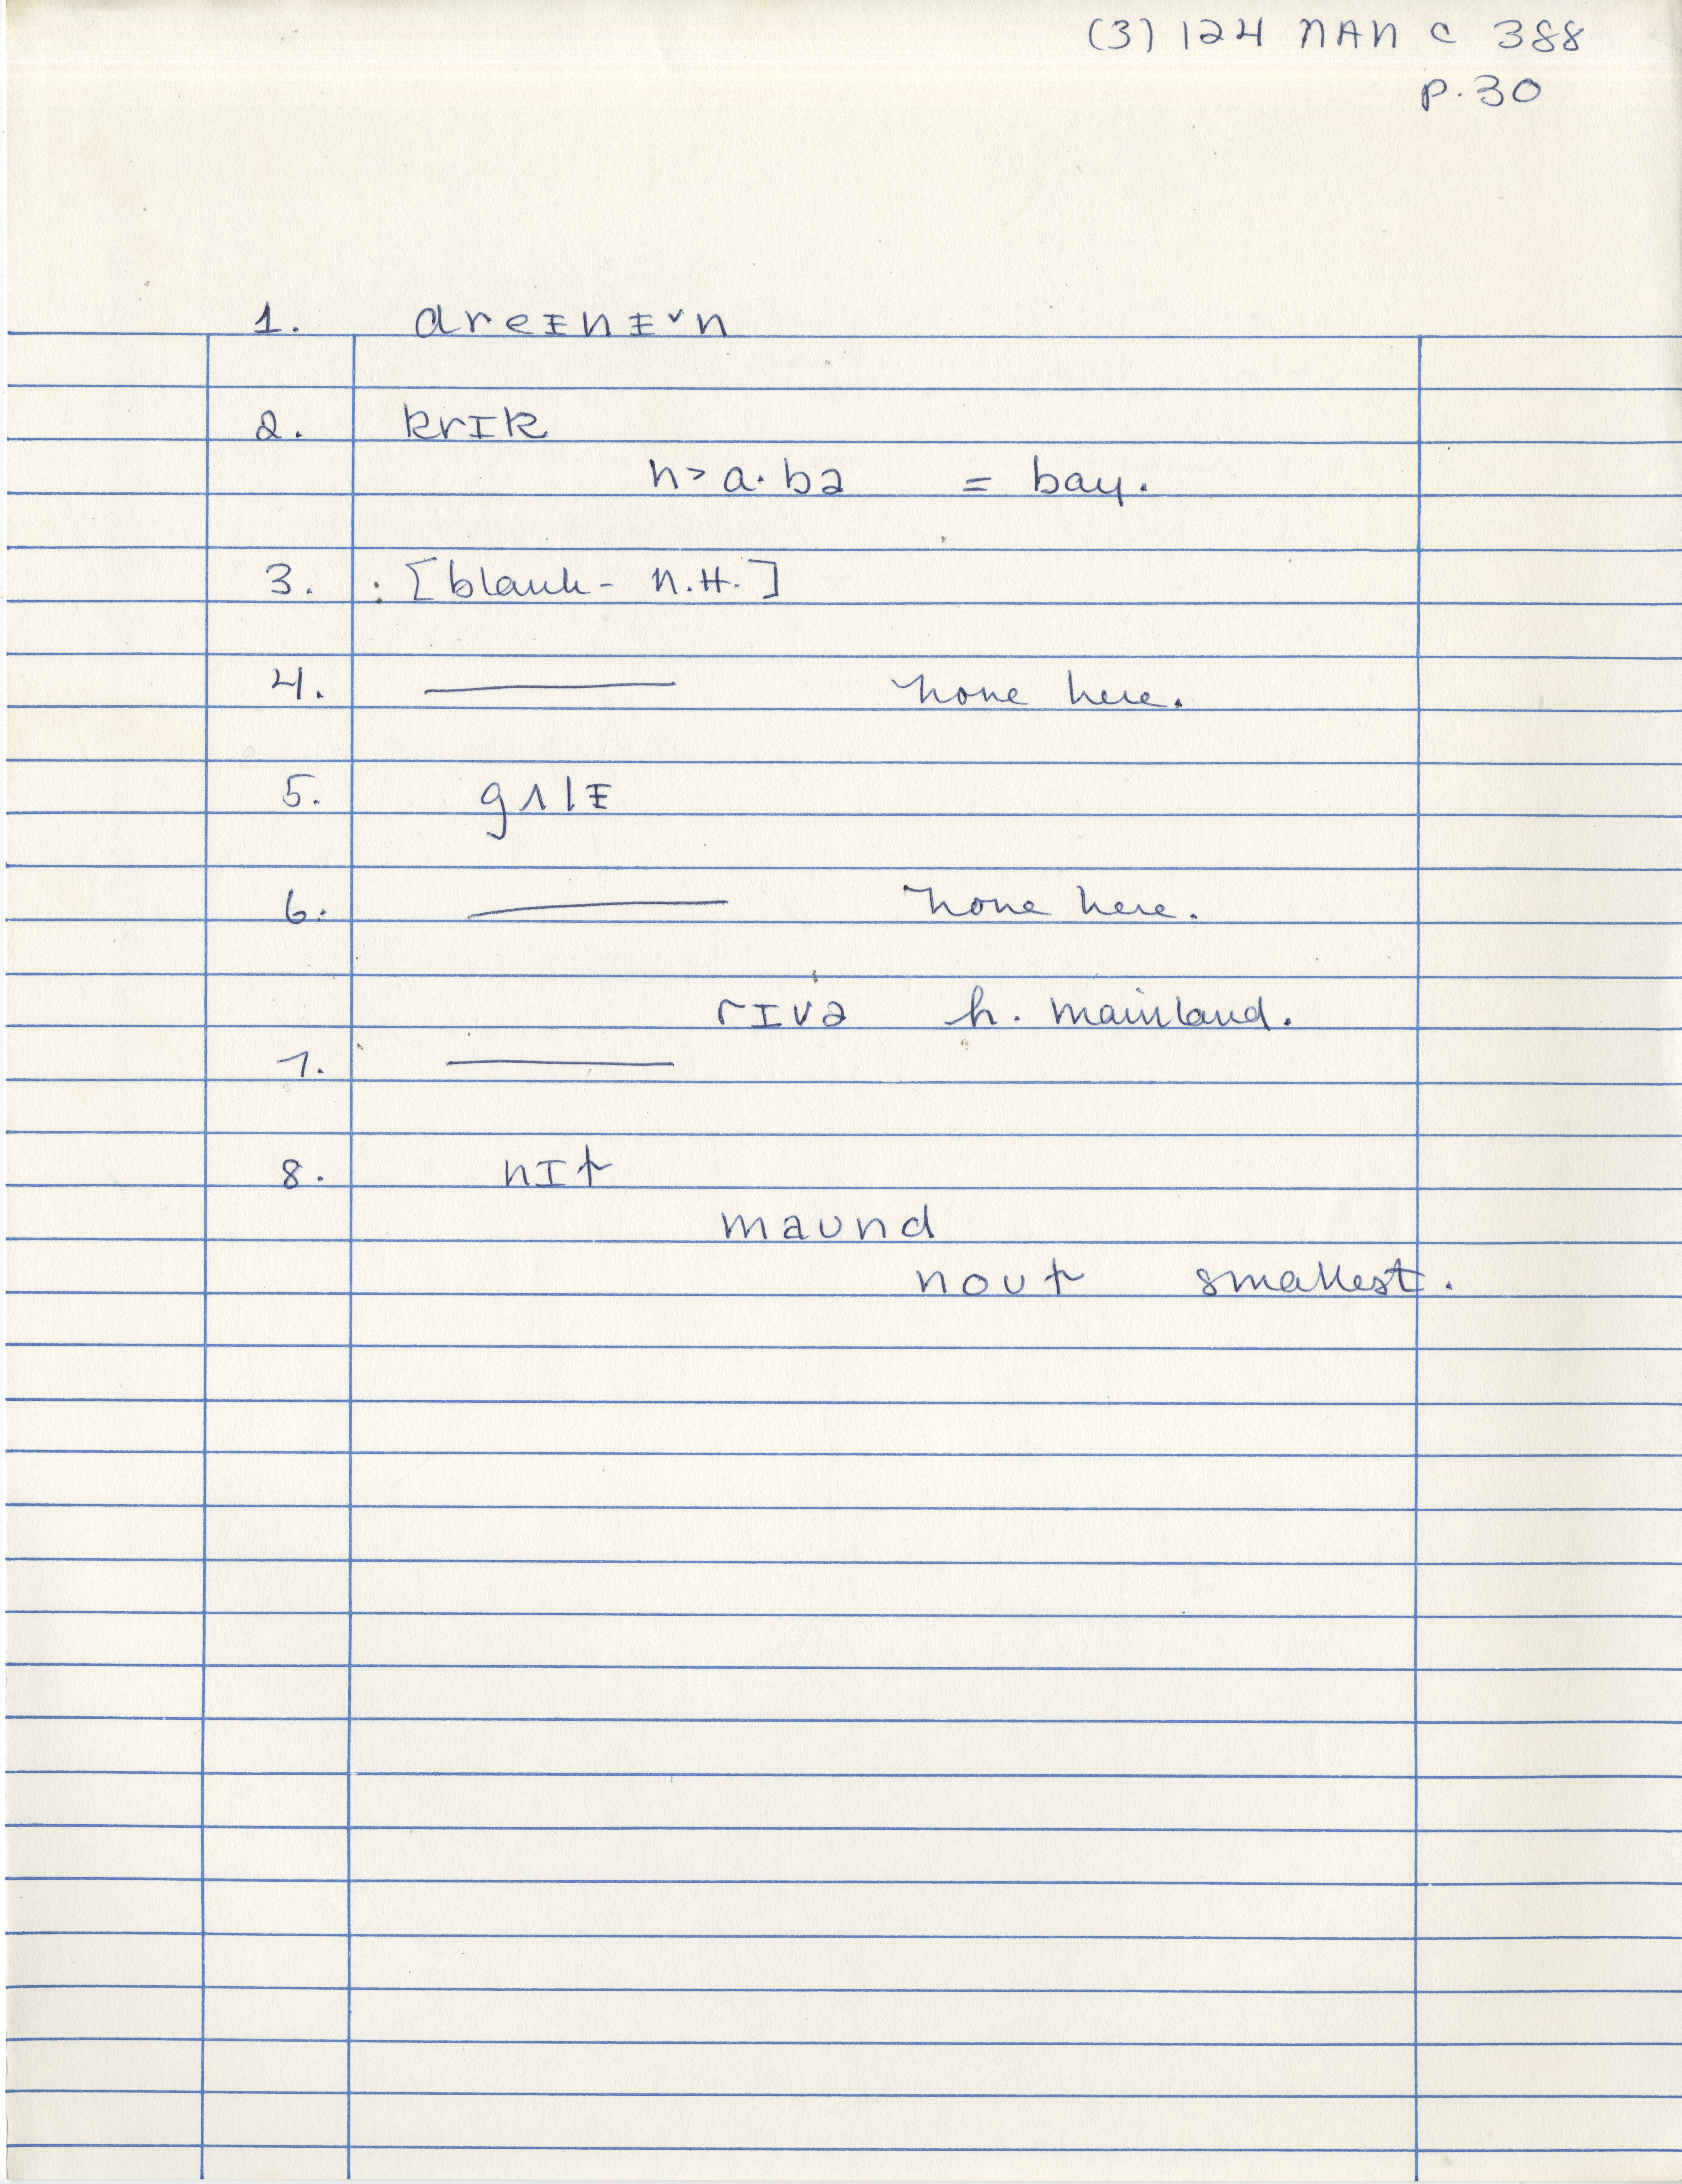 (3) 124 NAN C 388
p. 30
1. dreɪnᵻˇn
2. krɪk
h˃a·bə = bay.
3. : [blank - N.H.]
4. ——— none here.
5. gʌlᵻ
6. ——— none here.
rɪvə h. mainland.
7. ———
8. nɪt
maʊnd
noʊt smallest.